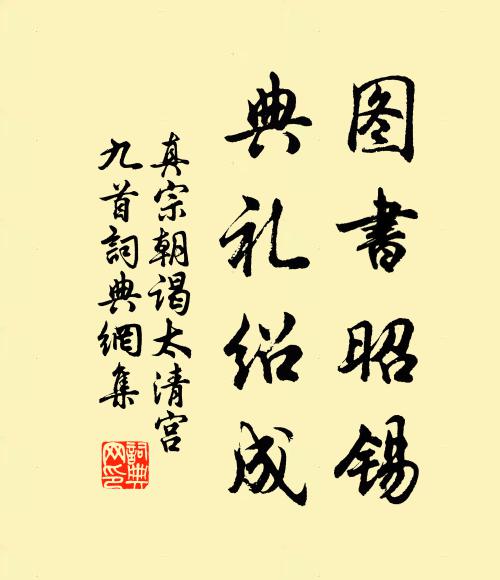 图书昭锡
典礼绍成
真宗朝谒太清宫
九首詞典網集
詞典
网印